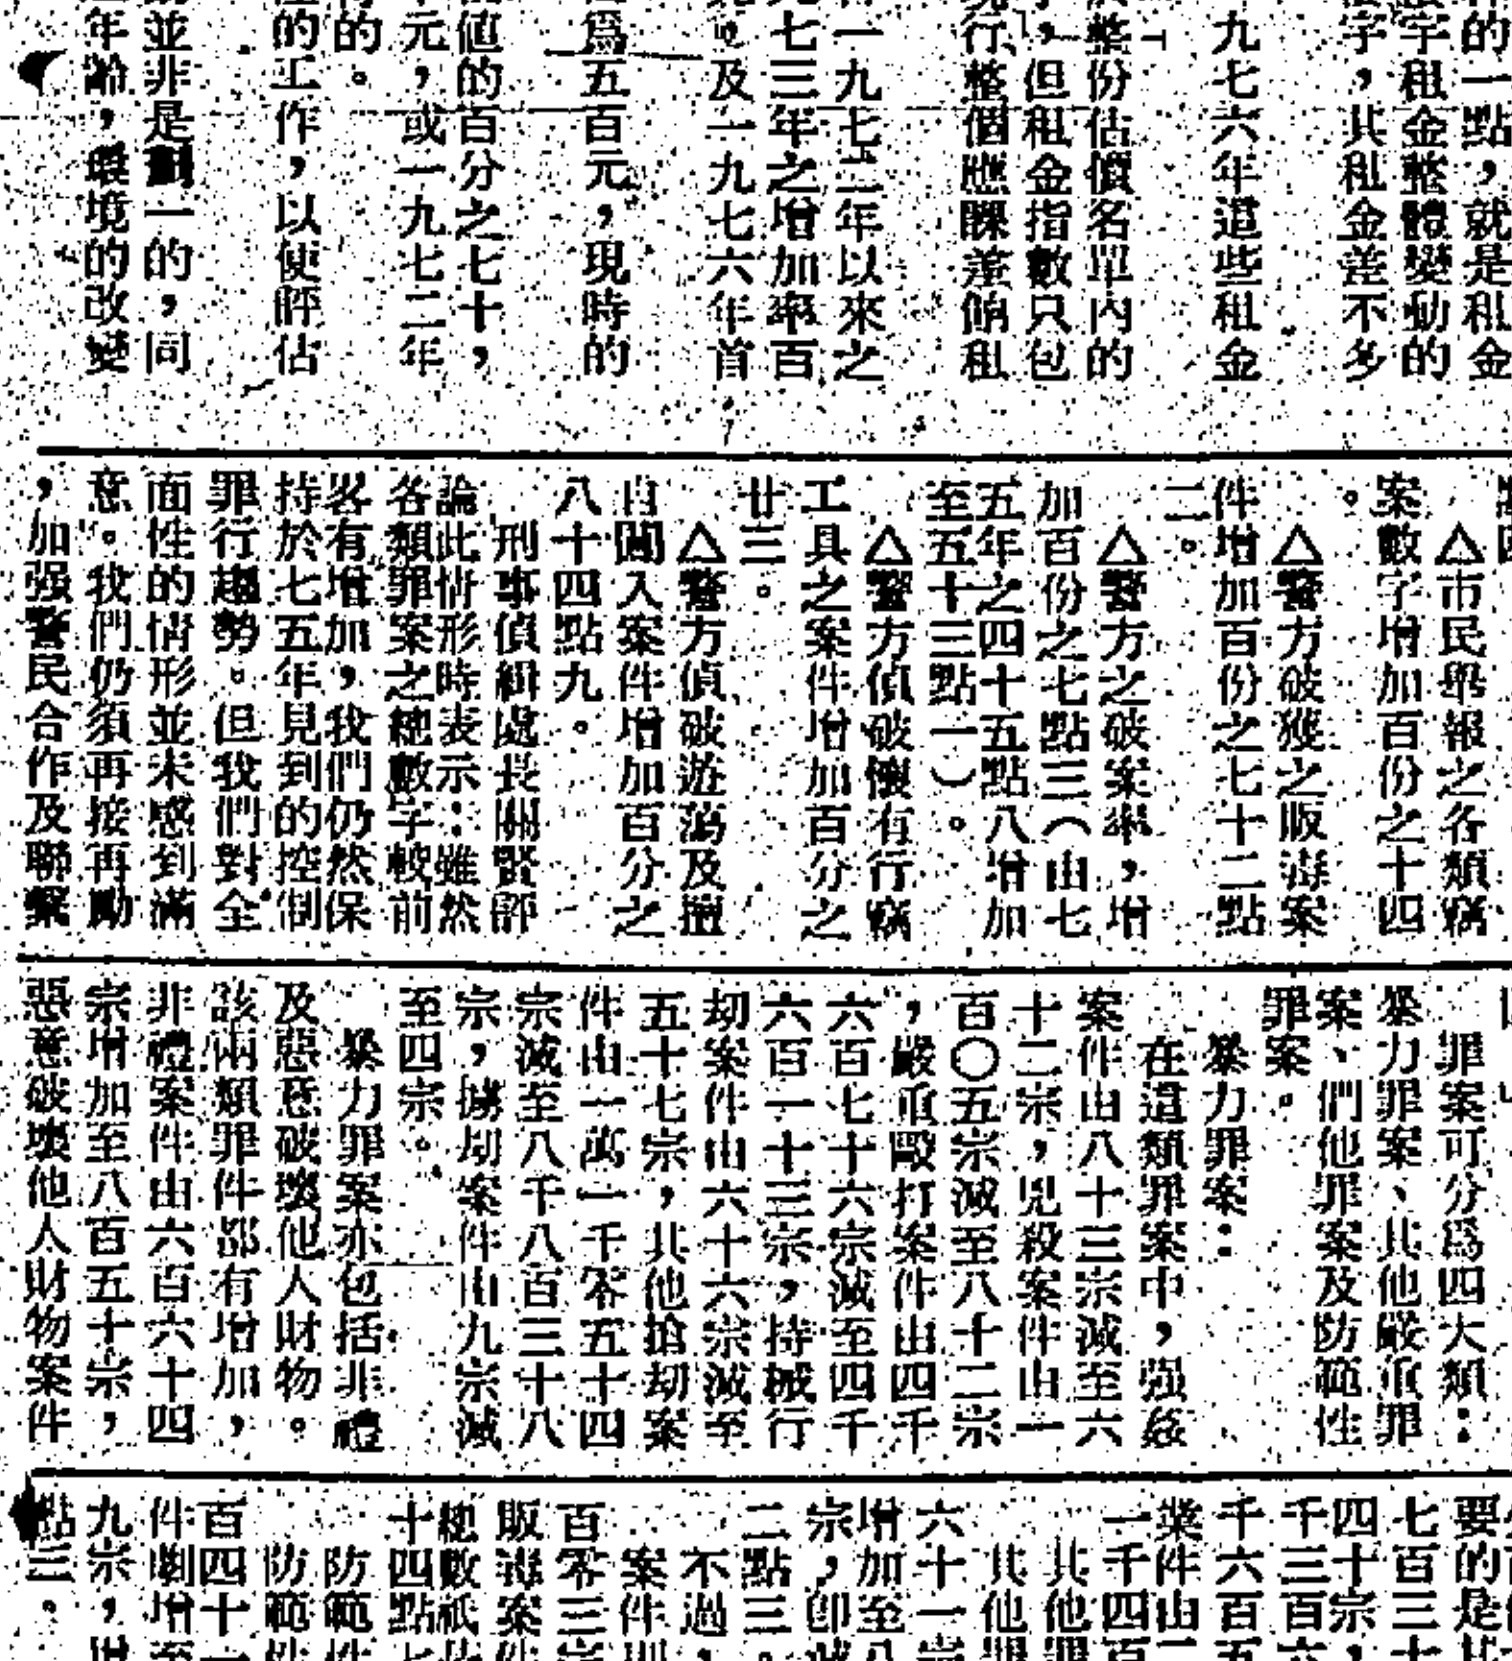 的一點,就是租金
字租金整體變動的
字,其租金差不多
九七六年這些租金
整份估價名單內的
,但租金指數只包
行整個應課差餉租
一九七二年以來之
七三年之增加率百
及一九七六年首
爲五百元,現時的
值的百分之七十,
元,或一九七二年
的。
的工作,以使評估
並非是劃一的,同
年齡,環境的改變
△市民舉報之各類竊
案數字增加百份之十四
。
△警方破獲之販毒案
件增加百份之七十二點
二。
△警方之破案率,增
加百份之七點三(由七
五年之四十五點八增加
至五十三點一)。
△警方偵破懷有行竊
工具之案件增加百分之
廿三。
△警方偵破遊蕩及擅
自闖入案件增加百分之
八十四點九。
刑事偵緝處長關賢評
論此情形時表示:雖然
各類罪案之總數字較前
畧有增加,我們仍然保
持於七五年見到的控制
罪行趨勢。但我們對全
面性的情形並未感到滿
意。我們仍須再接再勵
,加强警民合作及聯繫
罪案可分爲四大類:
暴力罪案、其他嚴重罪
案、們他罪案及防範性
罪案。
暴力罪案:
在這類罪案中,强姦
案件由八十三宗減至六
十二宗,兇殺案件由一
百〇五宗減至八十二宗
,嚴重毆打案件由四千
六百七十六宗減至四千
六百一十三宗,持械行
刼案件由六十六宗減至
五十七宗,其他搶刼案
件由一萬一千零五十四
宗減至八千八百三十八
宗,擄刼案件由九宗減
至四宗。
暴力罪案亦包括非禮
及惡意破壞他人財物。
該兩類罪件都有增加,
非禮案件由六百六十四
宗增加至八百五十宗,
惡意破壞他人財物案件
要的是
七百三十
四十宗,
千三百六
千六百五
案件由二
一千四百
其他罪
其他罪
六十一宗
增加至八
宗,卽減
二點三。
不過,
案件則
百零三宗
販毒案件
總數祇
十四點七
防範性
防範性
百四十一
件劇增至
九宗,
點三。